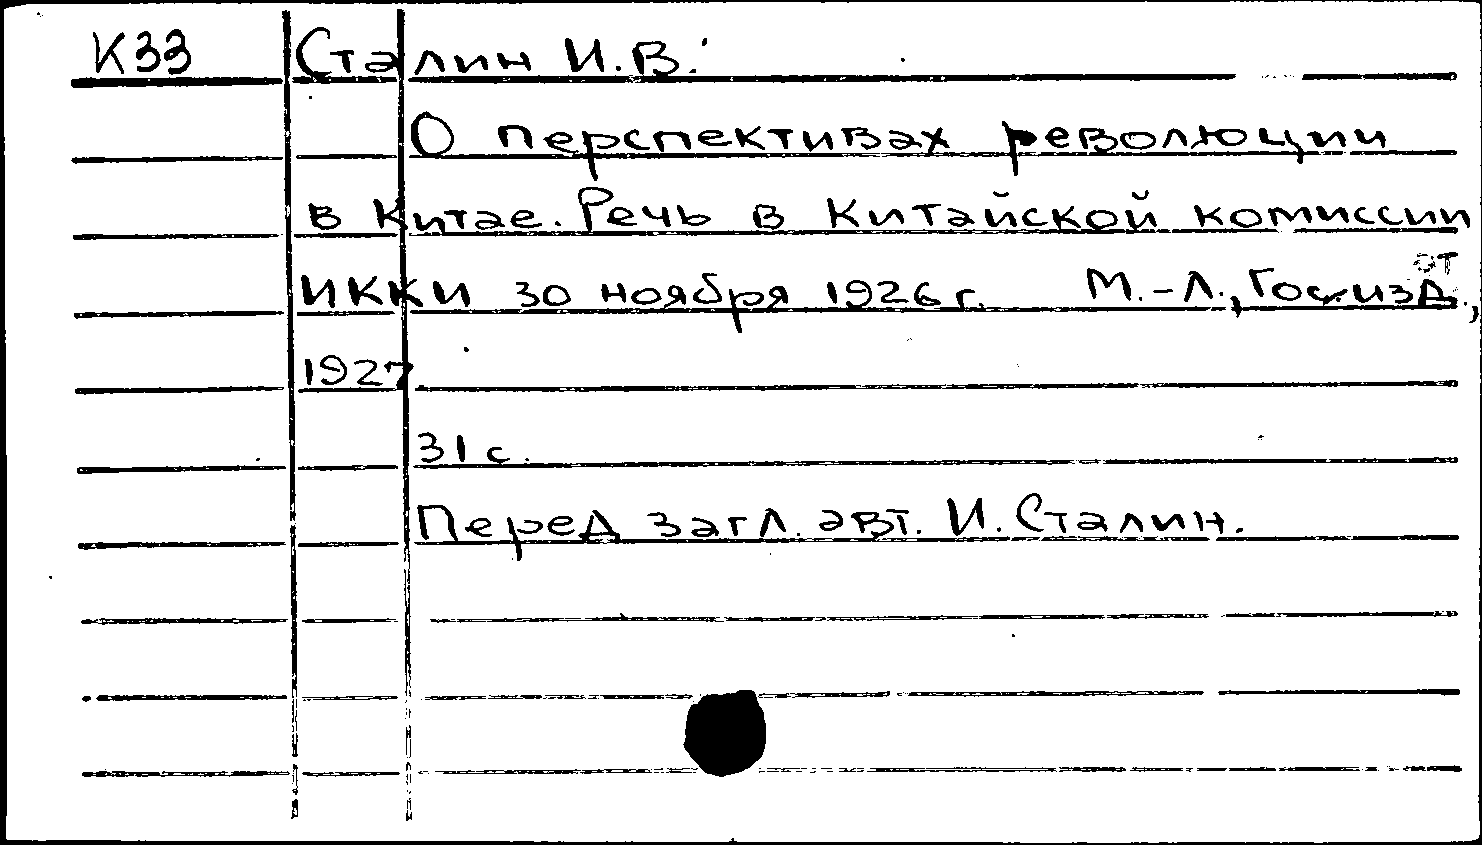 К33 Сталин И.В.
О перспективах революции
в Китае. Речь в Китайской комиссии
ИККИ 30 ноября 1926 г. М.-Л., Госизд.,
1927
31 с.
Перед загл. авт. И. Сталин.